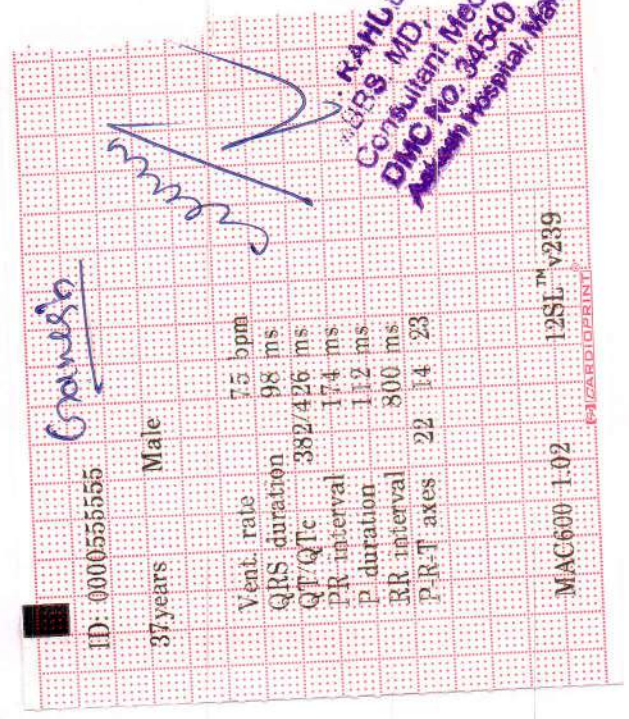 Ganesh
ID: 0000555555
37years Male
Vent. rate 75 bpm
QRS duration 98 ms
QT/QTc 382/426 ms
PR interval 174 ms
P duration 112 ms
RR interval 800 ms
P-R-T axes 22 14 23
MAC600 1.02 12SL™ v239
CARDIOPRINT
RAHU
MBBS, MD,
Consultant Med
DMC NO. 34540
Hospital, Ma